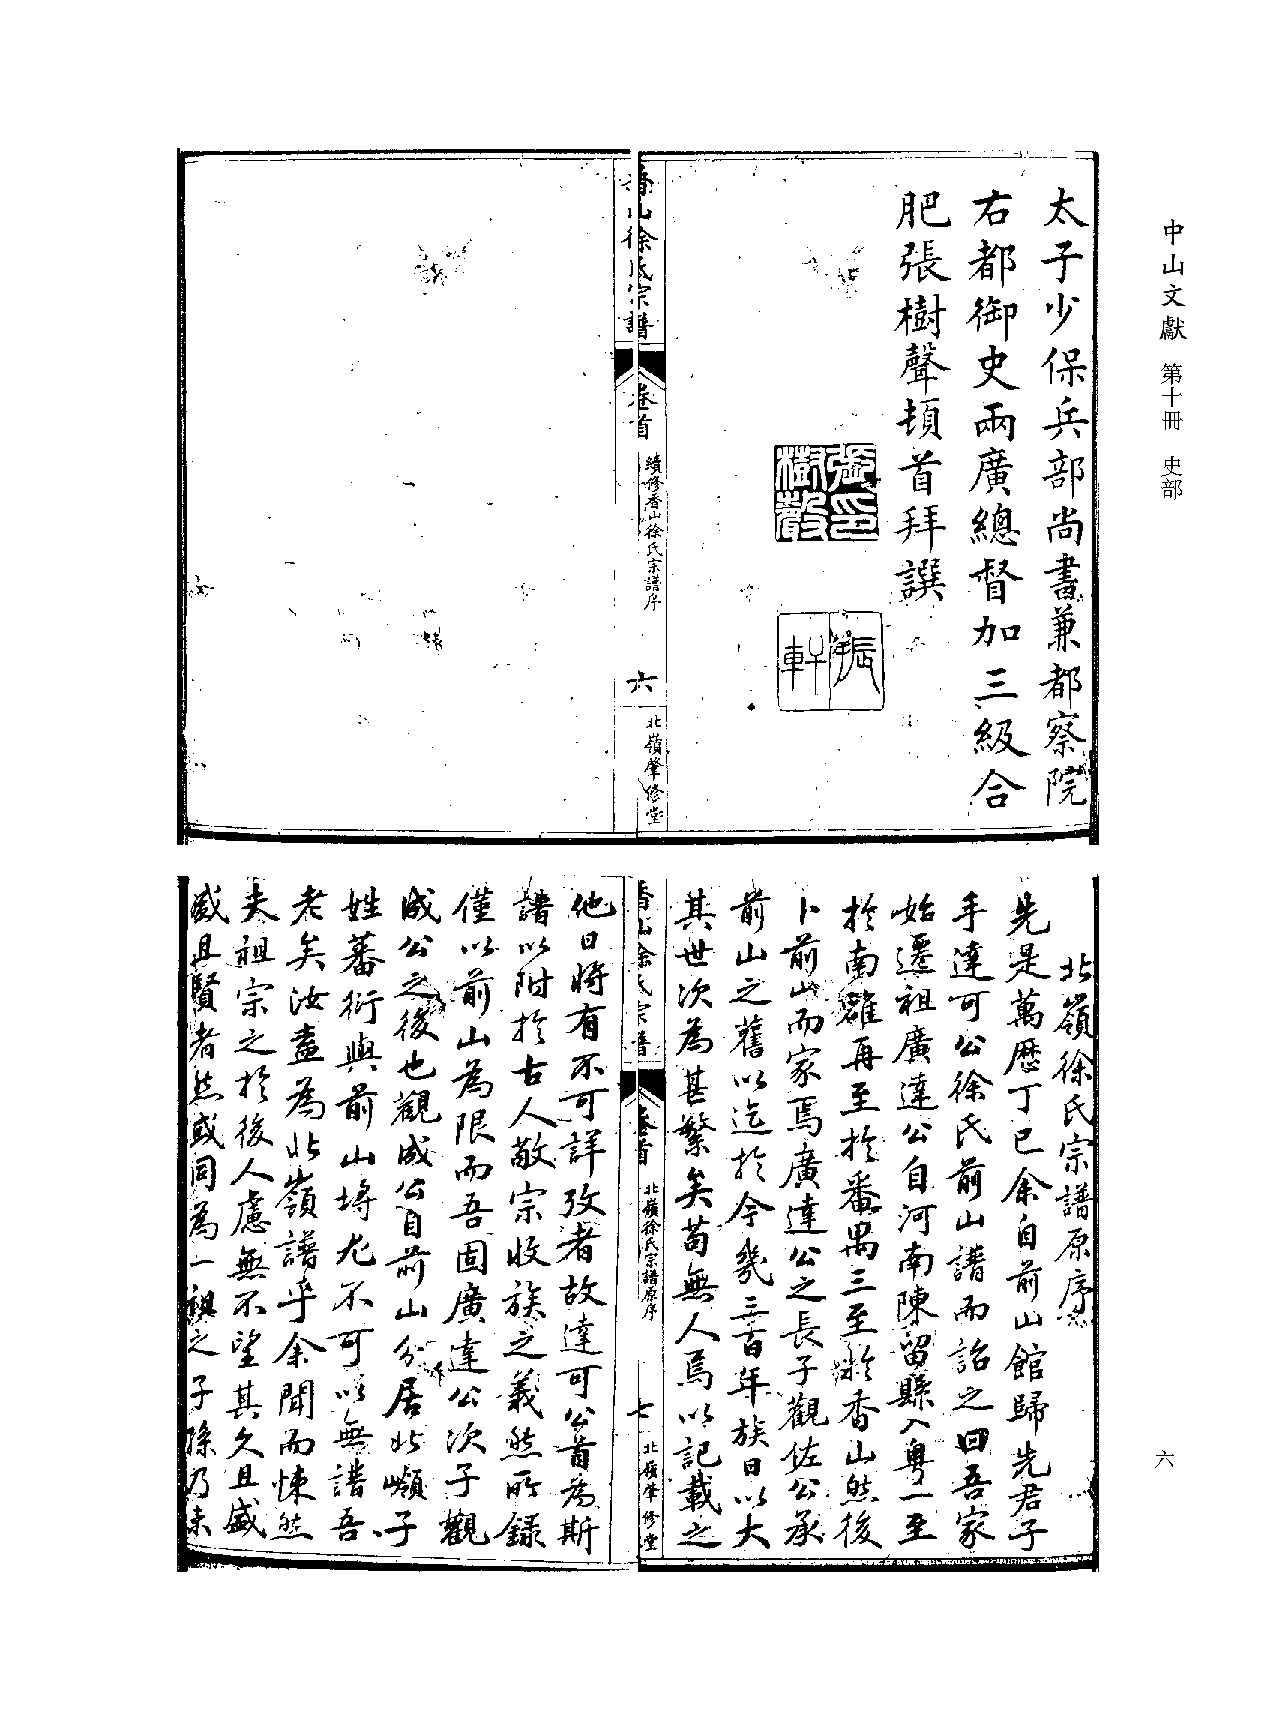 中山文獻 第十冊 史部
太子少保兵部尚書兼都察院
右都御史兩廣總督加三級合
肥張樹聲頓首拜譔
張樹聲印
振軒
香山徐氏宗譜 卷首 續修香山徐氏宗譜序 六 北嶺肇修堂
北嶺徐氏宗譜原序
先是萬歷丁巳余自前山館歸先君子
手達可公徐氏前山譜而詒之曰吾家
始遷祖廣達公自河南陳留縣入粵一至
於南雄再至於番禺三至於香山然後
卜前山而家焉廣達公之長子觀佐公承
前山之舊以迄於今幾三百年族日以大
其世次為甚繁矣苟無人焉以記載之
香山徐氏宗譜 卷首 北嶺徐氏宗譜原序 七 北嶺肇修堂
他日將有不可詳攷者故達可公首為斯
譜以附於古人敬宗收族之義然所錄
僅以前山為限而吾固廣達公次子觀
成公之後也觀成公自前山分居北嶺子
姓蕃衍與前山埒尤不可以無譜吾
老矣汝盍為北嶺譜乎余聞而悚然
夫祖宗之於後人慮無不望其久且盛
盛且賢者然或同為一祖之子孫乃未
六